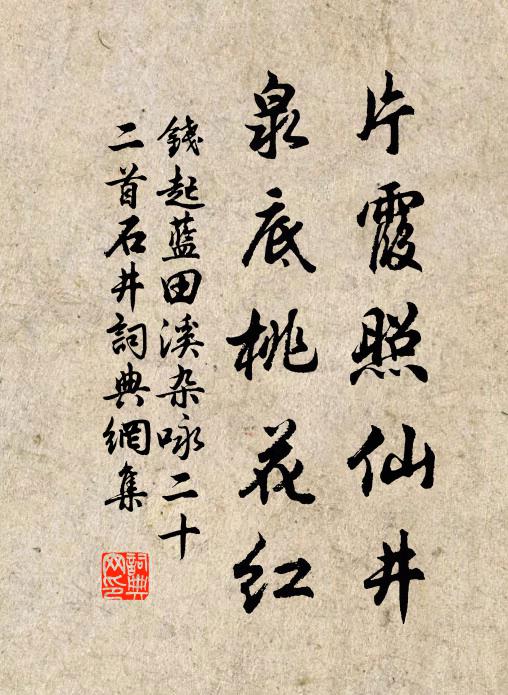 片霞照仙井
泉底桃花红
錢起藍田溪杂咏二十
二首石井詞典網集
詞典
网印